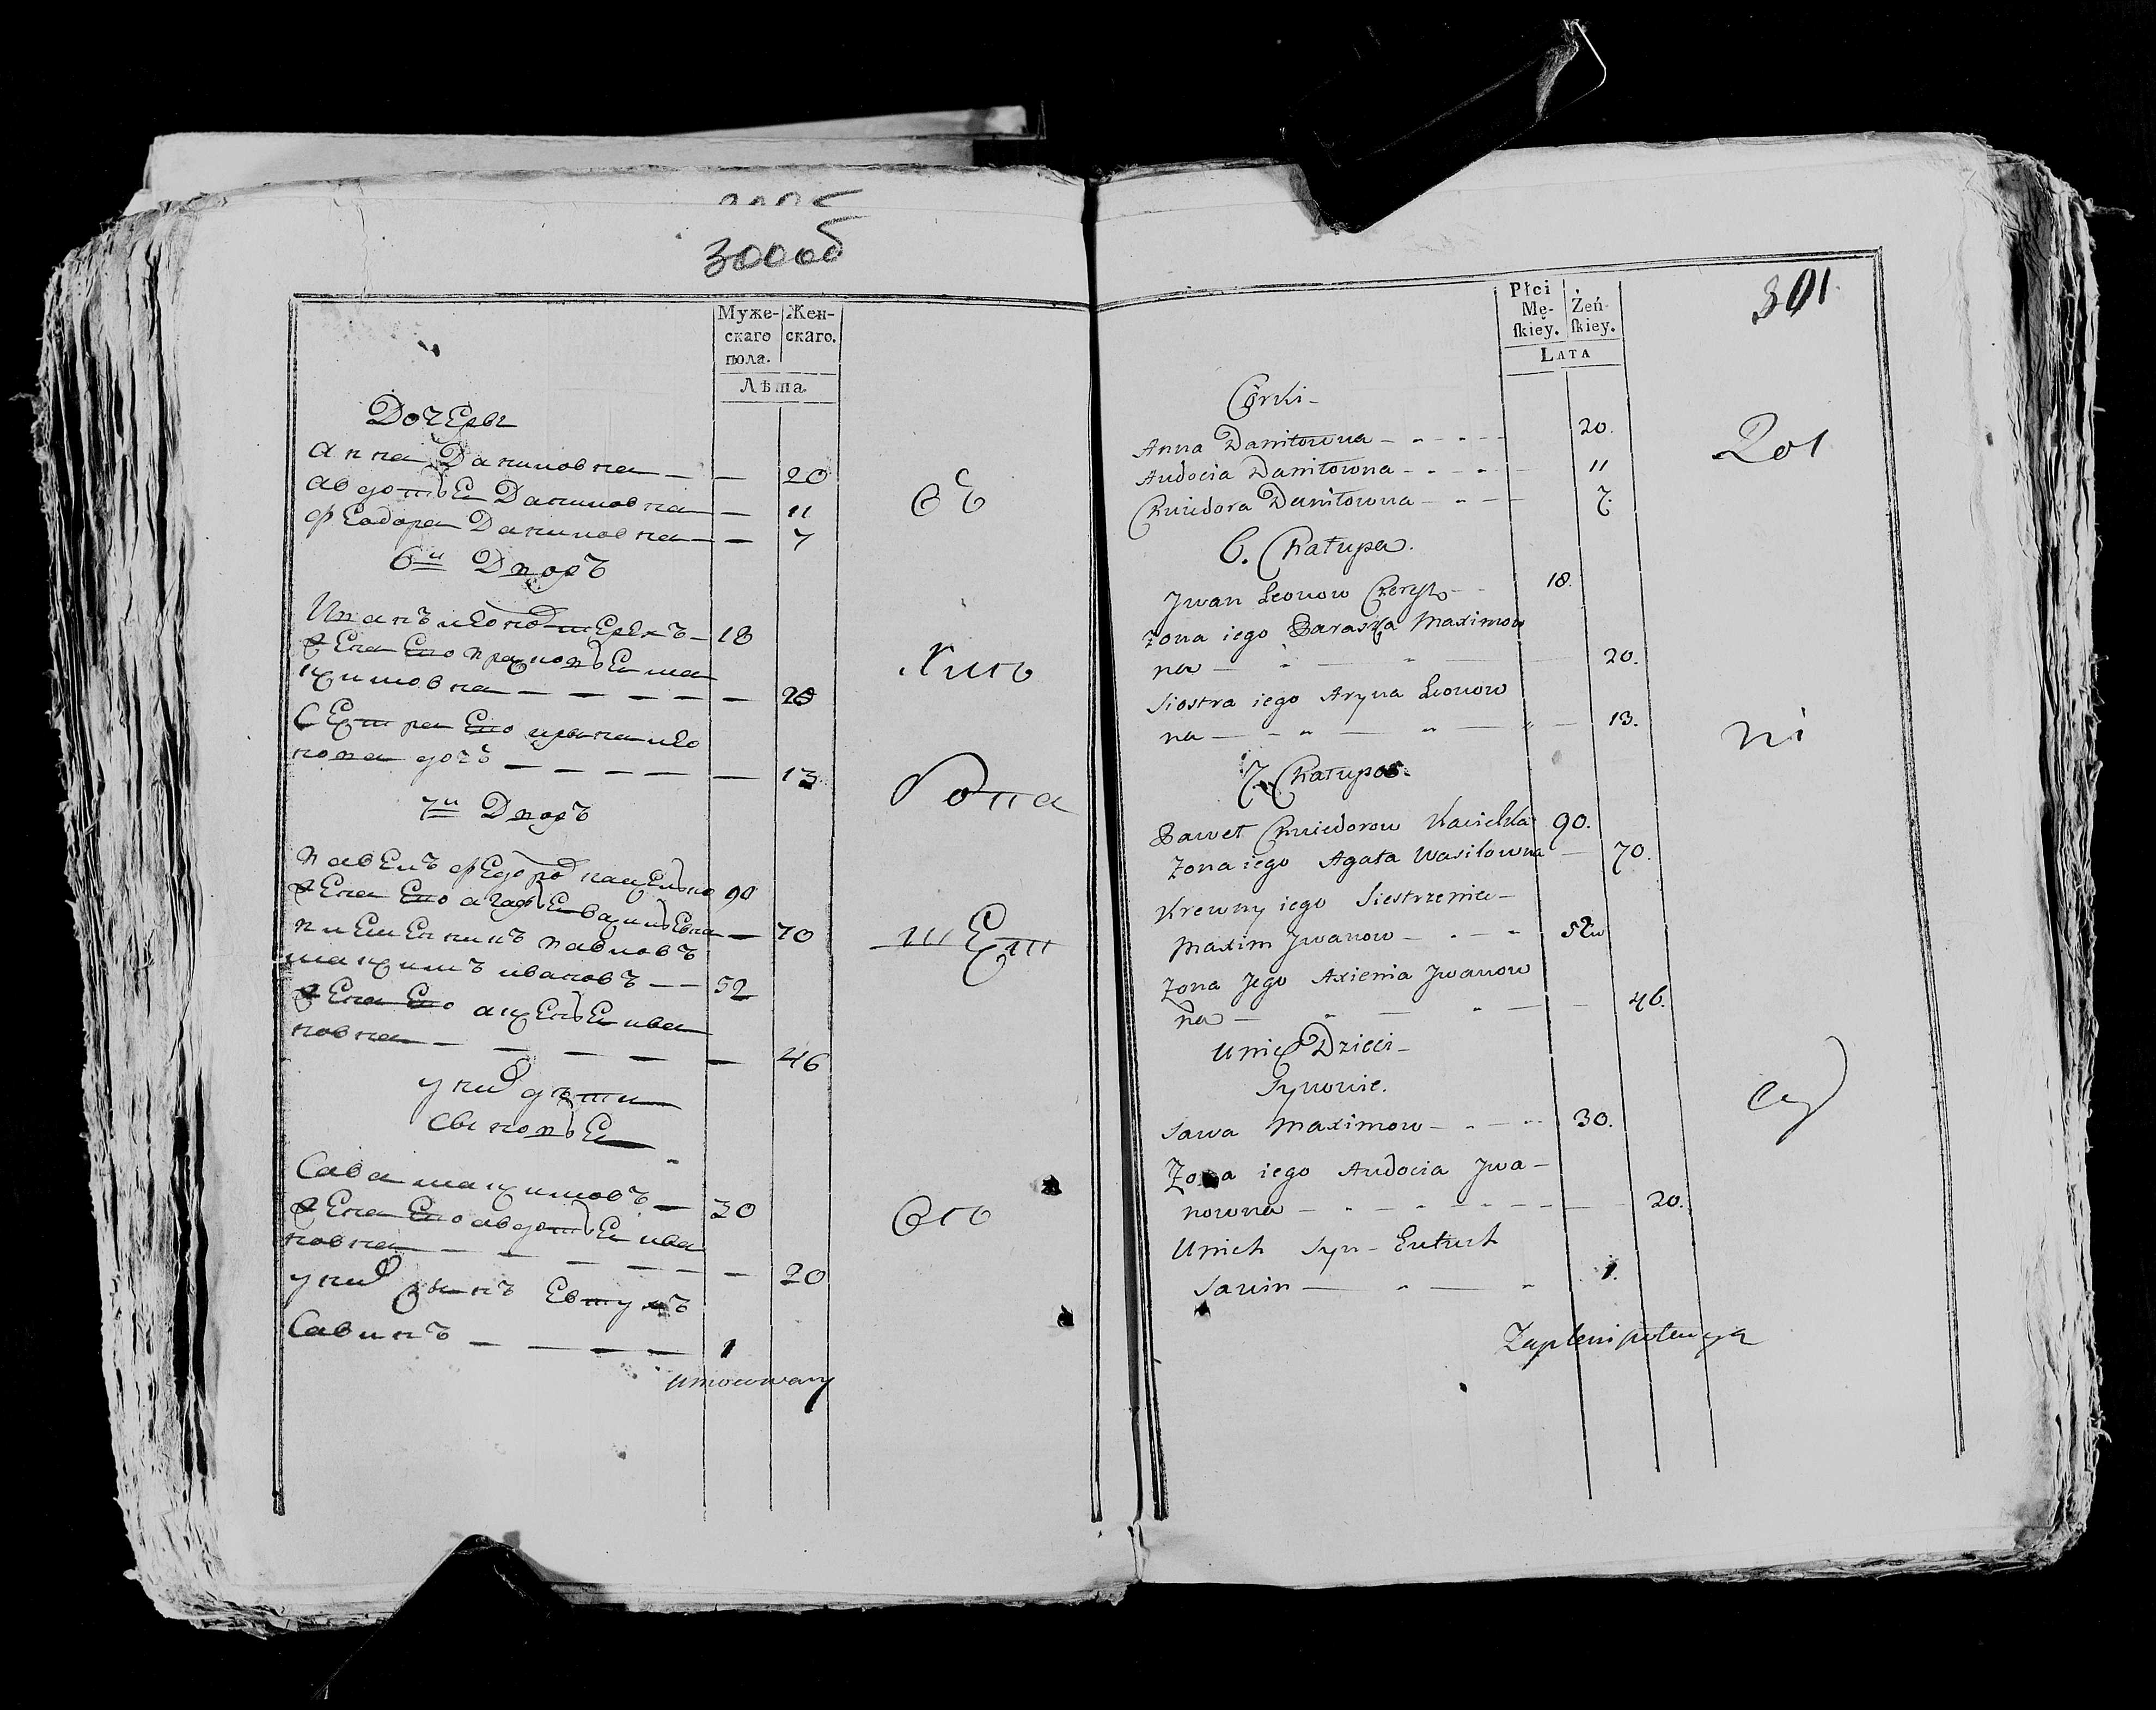 300об
Муже-
скаго
пола.
Жен-
скаго.
Лѣта.
Дочеры
Анна Даниловна — — 20
Авдотьея Даниловна — 11
Феодора Даниловна — — 7
6й Дворъ
Иванъ Леоновъ — 18
Жена Его Прасковьея Ма
ксимовна — — — — — 20
Сестра Его Арына Лео
нова дочъ — — — — — 13
7й Дворъ
Павелъ Федоровъ 90
Жена Его Агафьея Васильевна — 70
Племенникъ Павловъ
Максимъ Ивановъ — — 52
Жена Его Аксеньея Ива
новна — — — — — — 46
у них дѣти
Сыновьея
Сава Максимовъ — 30
Жена Его Авдотьея Ива
новна — — — — — — 20
у них сынъ Евтухъ
Савинъ — — — — 1
Umocowany
301
Płci
Mę-
ſkiey.
Żeń-
ſkiey.
LATA
Córki -
Anna Daniłowna - - - - - 20.
Audocia Daniłowna - - - - 11
Chwiedora Daniłowna - - - 7.
6. Chałupa.
Jwan Leonow - 18.
Żona iego Paraska Maximow
na — - — - — 20.
Siostra iego Aryna Leonow
na — - - — - — 13.
7. Chałupa.
Paweł Chwiedorow 90.
Żona iego Agata Wasilowna — 70.
Krewny iego Siestrzenia -
Maxim Jwanow - - - - 52
Żona Jego Axienia Jwanow
na — - — - — 46.
U nich Dzieci -
Synowie.
Sawa Maximow - - - - 30.
Żona iego Audocia Jwa -
nowna - - - - - - - 20.
U nich Syn - Eutuch
Sawin — - — - 1.